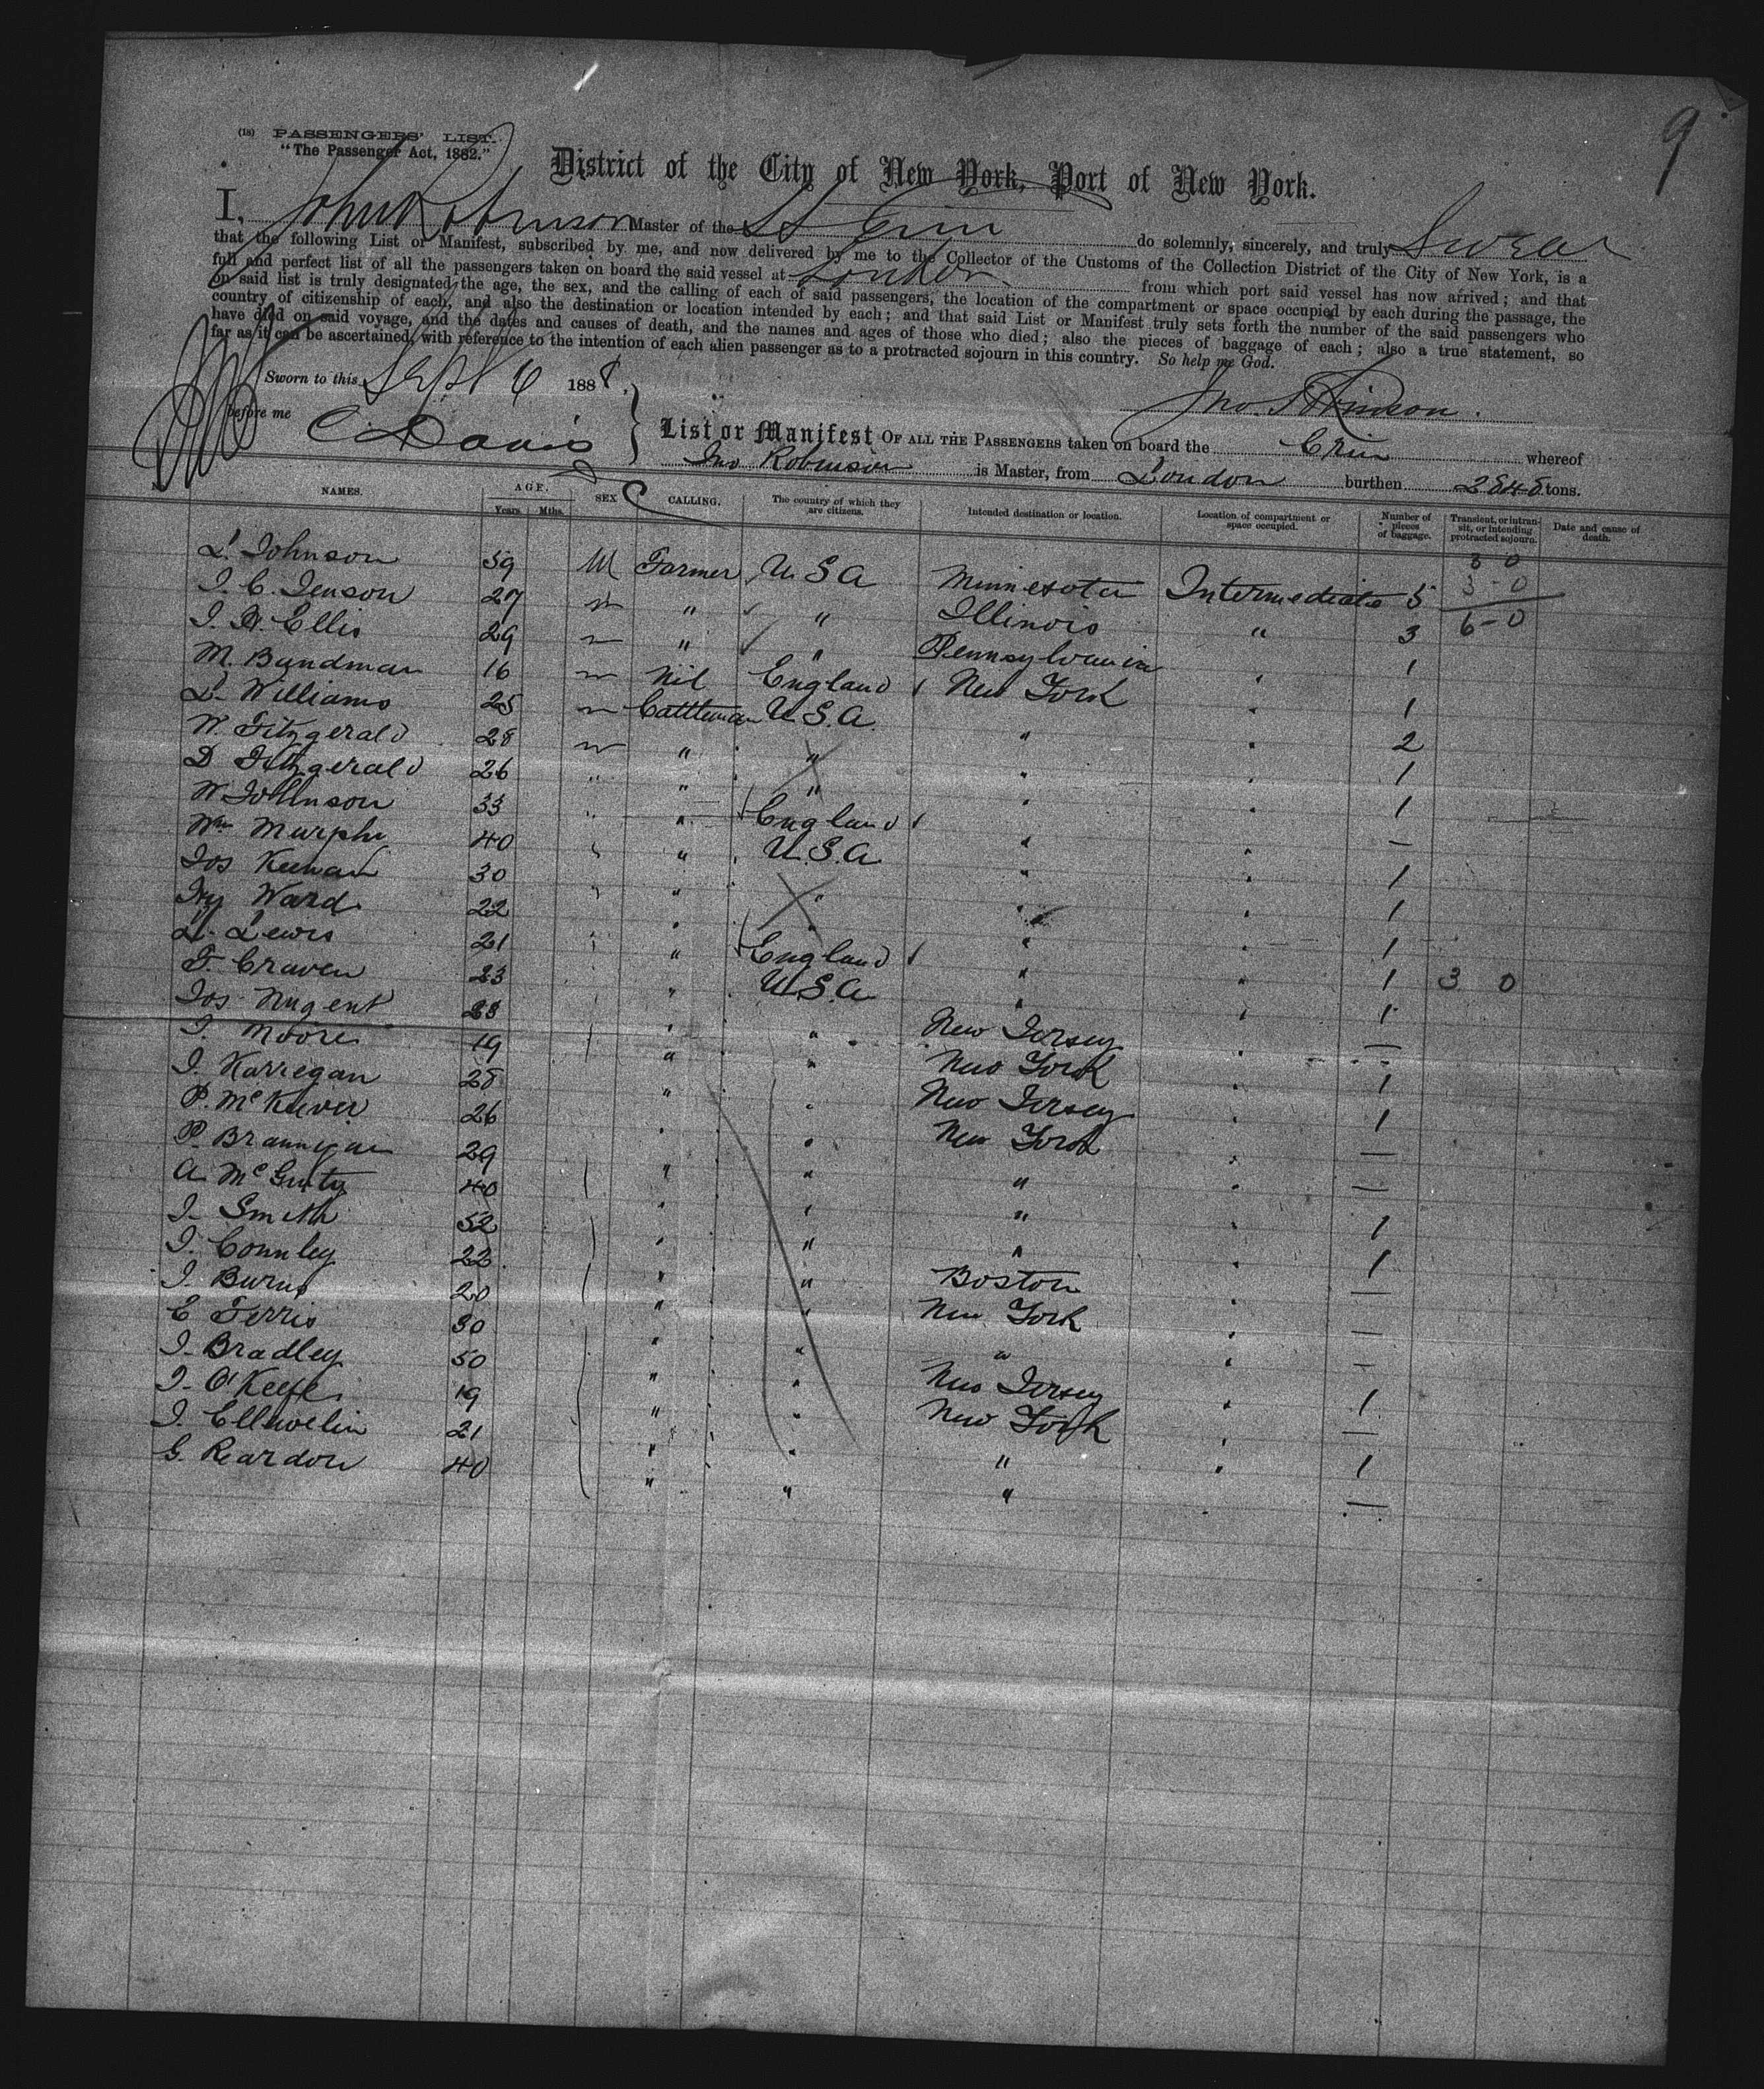 9
(18) PASSENGERS' LIST.
"The Passenger Act, 1882."
District of the City of New York, Port of New York.
I, John Robinson Master of the SS Erin do solemnly, sincerely, and truly Swear
that the following List or Manifest, subscribed by me, and now delivered by me to the Collector of the Customs of the Collection District of the City of New York, is a
full and perfect list of all the passengers taken on board the said vessel at London from which port said vessel has now arrived; and that
on said list is truly designated the age, the sex, and the calling of each of said passengers, the location of the compartment or space occupied by each during the passage, the
country of citizenship of each, and also the destination or location intended by each; and that said List or Manifest truly sets forth the number of the said passengers who
have died on said voyage, and the dates and causes of death, and the names and ages of those who died; also the pieces of baggage of each; also a true statement, so
far as it can be ascertained, with reference to the intention of each alien passenger as to a protracted sojourn in this country. So help me God.
Sworn to this Sept 6 1888.
Jno. Robinson.
before me C Davis
List or Manifest OF ALL THE PASSENGERS taken on board the Erin whereof
Jno Robinson is Master, from London burthen tons.
NAMES. AGE. Years. Mths. SEX CALLING. The country of which they are citizens. Intended destination or location. Location of compartment or space occupied. Number of pieces of baggage. Transient, or in transit, or intending protracted sojourn. Date and cause of death.
3 0
3 - 0
6 - 0
L. Johnson 59 M Farmer U S A Minnesota Intermediate 5
J. C. Jenson 27 " " " Illinois " 3
J. H. Ellis 29 " " " Pennsylvania " 1
M. Bandman 16 " Nil England New York " 1
L. Williams 25 " Cattleman U.S.A. " " 2
W. Fitzgerald 28 " " " " " 1
D Fitzgerald 26 " " " " " 1
W Johnson 33 " " England " " —
Wm Murphy 40 " " U.S.A. " " 1
Jos Keenan 30 " " " " " 1
Hy Ward 22 " " " " " 1
L. Lewis 21 " " England " " 1 3 0
F. Craven 23 " " U.S.A " " 1
Jos Nugent 28 " " " New Jersey " —
J. Moore 19 " " " New York " 1
J. Karregan 28 " " " New Jersey " 1
P. McKeever 26 " " " New York " —
P. Brannigan 29 " " " " " —
A McGinty 40 " " " " " 1
J. Smith 52 " " " " " 1
J. Connley 22 " " " Boston " —
J. Burns 20 " " " New York " —
C Ferris 30 " " " " " —
J. Bradley 50 " " " New Jersey " 1
J. O'Keefe 19 " " " New York " —
J. Ellwelin 21 " " " " " 1
G. Reardon 40 " " " " " —